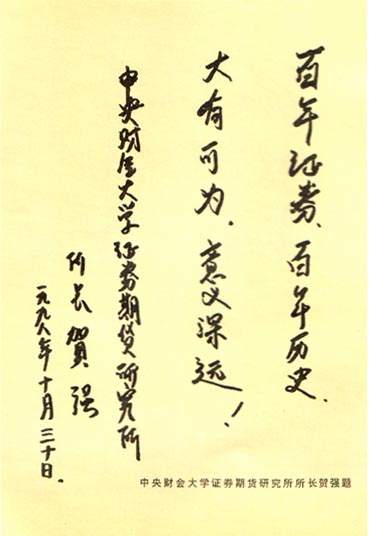 百年证券、百年历史、
大有可为、意义深远！
中央财金大学证券期货研究所
所长 贺强
一九九八年十月三十日.
中央财会大学证券期货研究所所长贺强题